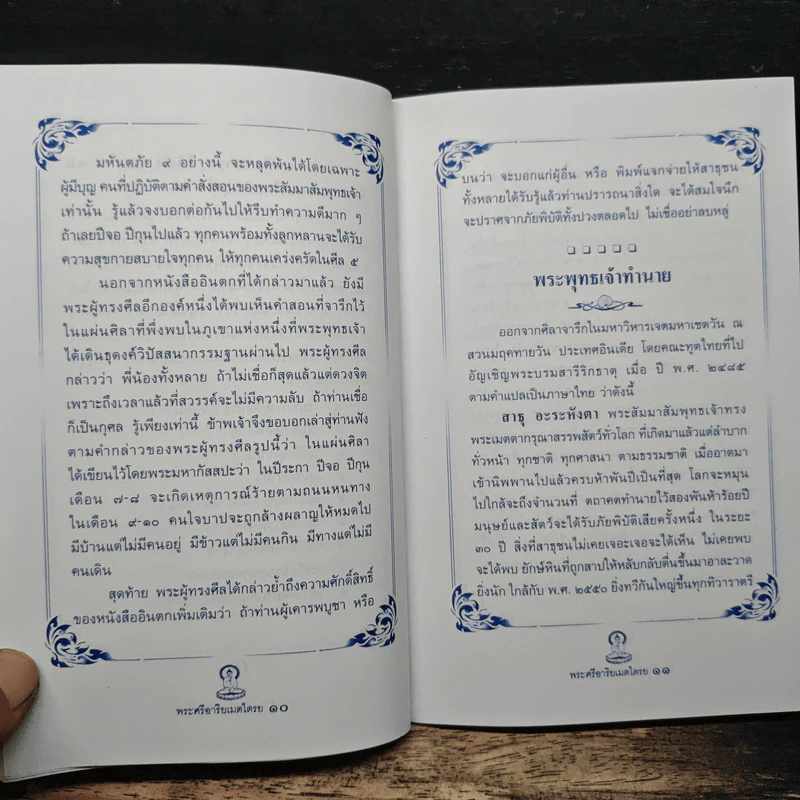 มหันตภัย ๙ อย่างนี้ จะหลุดพ้นได้โดยเฉพาะ
ผู้มีบุญ คนที่ปฏิบัติตามคำสั่งสอนของพระสัมมาสัมพุทธเจ้า
เท่านั้น รู้แล้วจงบอกต่อกันไปให้รีบทำความดีมาก ๆ
ถ้าเลยปีจอ ปีกุนไปแล้ว ทุกคนพร้อมทั้งลูกหลานจะได้รับ
ความสุขกายสบายใจทุกคน ให้ทุกคนเคร่งครัดในศีล ๕
นอกจากหนังสืออินตกที่ได้กล่าวมาแล้ว ยังมี
พระผู้ทรงศีลอีกองค์หนึ่งได้พบเห็นคำสอนที่จารึกไว้
ในแผ่นศิลาที่พึ่งพบในภูเขาแห่งหนึ่งที่พระพุทธเจ้า
ได้เดินธุดงค์วิปัสสนากรรมฐานผ่านไป พระผู้ทรงศีล
กล่าวว่า พี่น้องทั้งหลาย ถ้าไม่เชื่อก็สุดแล้วแต่ดวงจิต
เพราะถึงเวลาแล้วที่สวรรค์จะไม่มีความลับ ถ้าท่านเชื่อ
ก็เป็นกุศล รู้เพียงเท่านี้ ข้าพเจ้าจึงขอบอกเล่าสู่ท่านฟัง
ตามคำกล่าวของพระผู้ทรงศีลรูปนี้ว่า ในแผ่นศิลา
ได้เขียนไว้โดยพระมหากัสสปะว่า ในปีระกา ปีจอ ปีกุน
เดือน ๗-๘ จะเกิดเหตุการณ์ร้ายตามถนนหนทาง
ในเดือน ๙-๑๐ คนใจบาปจะถูกล้างผลาญให้หมดไป
มีบ้านแต่ไม่มีคนอยู่ มีข้าวแต่ไม่มีคนกิน มีทางแต่ไม่มี
คนเดิน
สุดท้าย พระผู้ทรงศีลได้กล่าวย้ำถึงความศักดิ์สิทธิ์
ของหนังสืออินตกเพิ่มเติมว่า ถ้าท่านผู้เคารพบูชา หรือ
พระศรีอาริยเมตไตรย ๑๐
บนว่า จะบอกแก่ผู้อื่น หรือ พิมพ์แจกจ่ายให้สาธุชน
ทั้งหลายได้รับรู้แล้วท่านปรารถนาสิ่งใด จะได้สมใจนึก
จะปราศจากภัยพิบัติทั้งปวงตลอดไป ไม่เชื่ออย่าลบหลู่
พระพุทธเจ้าทำนาย
ออกจากศิลาจารึกในมหาวิหารเจตมหาเชตวัน ณ
สวนมฤคทายวัน ประเทศอินเดีย โดยคณะทูตไทยที่ไป
อัญเชิญพระบรมสารีริกธาตุ เมื่อ ปี พ.ศ. ๒๔๘๕
ตามคำแปลเป็นภาษาไทย ว่าดังนี้
สาธุ อะระหังตา พระสัมมาสัมพุทธเจ้าทรง
พระเมตตากรุณาสรรพสัตว์ทั่วโลก ที่เกิดมาแล้วแต่ลำบาก
ทั่วหน้า ทุกชาติ ทุกศาสนา ตามธรรมชาติ เมื่ออาตมา
เข้านิพพานไปแล้วครบห้าพันปีเป็นที่สุด โลกจะหมุน
ไปใกล้จะถึงจำนวนที่ ตถาคตทำนายไว้สองพันห้าร้อยปี
มนุษย์และสัตว์จะได้รับภัยพิบัติเสียครั้งหนึ่ง ในระยะ
๓๐ ปี สิ่งที่สาธุชนไม่เคยเจอะเจอจะได้เห็น ไม่เคยพบ
จะได้พบ ยักษ์หินที่ถูกสาปให้หลับกลับตื่นขึ้นมาอาละวาด
ยิ่งนัก ใกล้กับ พ.ศ. ๒๕๕๐ ยิ่งทวีกันใหญ่ขึ้นทุกทิวาราตรี
พระศรีอาริยเมตไตรย ๑๑